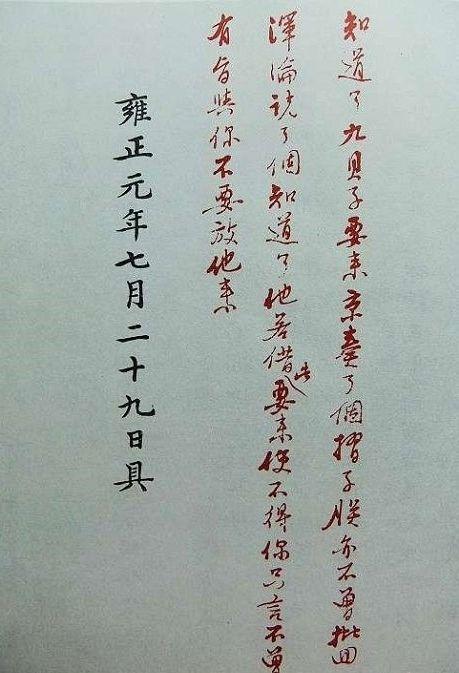 知道了九貝子要来京奏了個摺子朕亦不曾批囬
渾淪說了個知道了他若借此要来使不得你只言不曾
有旨與你不要放他来
雍正元年七月二十九日具